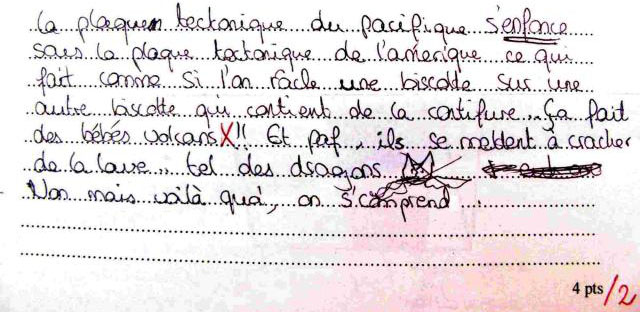 la plaquen tectonique du pacifique s'enfonce
sous la plaque tectonique de l'amerique ce qui
fait comme si l'on racle une biscotte sur une
autre biscotte qui contient de la confifure.. Ça fait
des bébés volcans X!! Et paf, ils se mettent à cracher
de la lave.. tel des dragons
Non mais voilà quoi, on s'comprend ...
4 pts /2